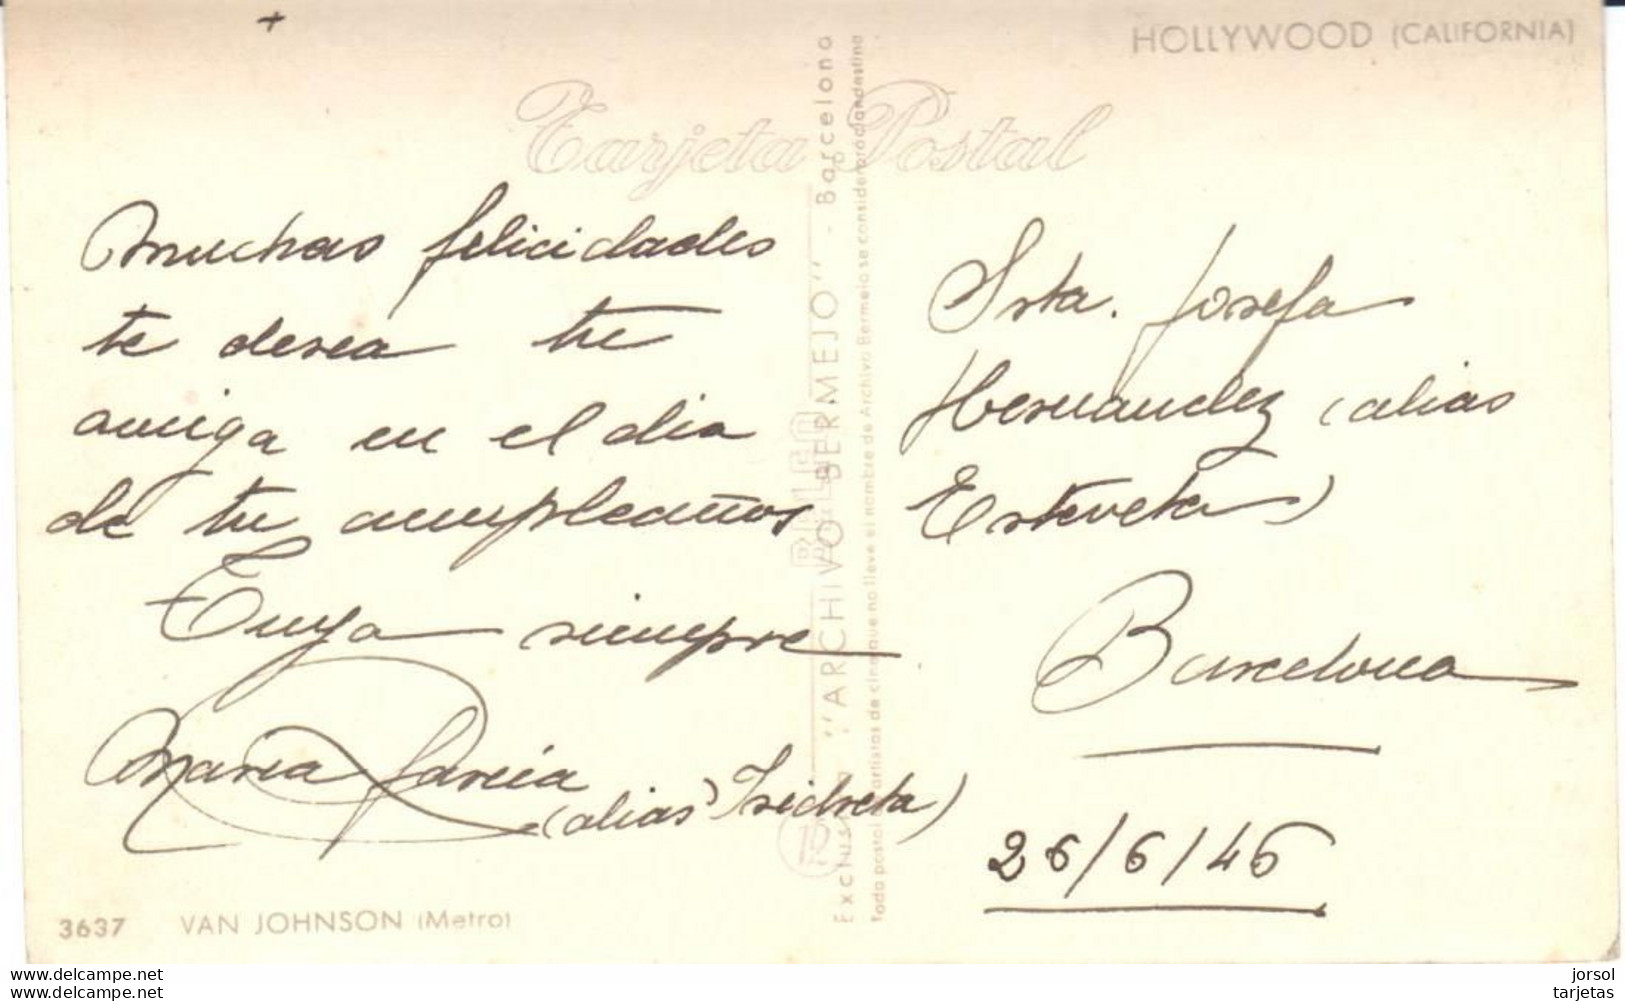 HOLLYWOOD (CALIFORNIA)
Tarjeta Postal
Muchas felicidades
te desea tu
amiga en el dia
de tu cumpleaños
Tuya siempre
Maria Garcia
(alias Isidreta)
Srta. Josefa
Hernandez (alias
Estéveta)
Barcelona
26/6/46
Exclusivas "ARCHIVO BERMEJO" - Barcelona
Toda postal de artistas de cine que no lleve el nombre de Archivo Bermejo se considerará clandestina
3637 VAN JOHNSON (Metro)
www.delcampe.net
www.delcampe.net
jorsol
tarjetas